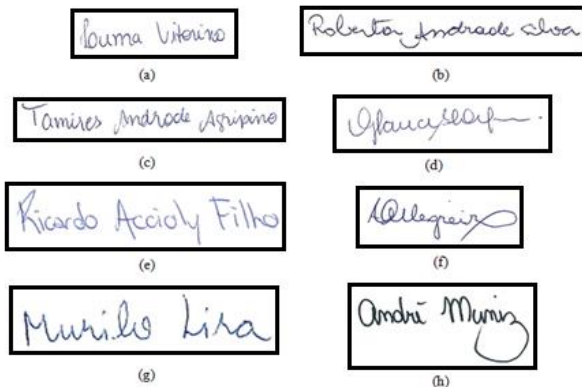 Vitorino
(a)
Roberta Andrade Silva
(b)
Tamires Andrade Agripino
(c)
(d)
Ricardo Accioly Filho
(e)
(f)
Murilo Lira
(g)
André Muniz
(h)